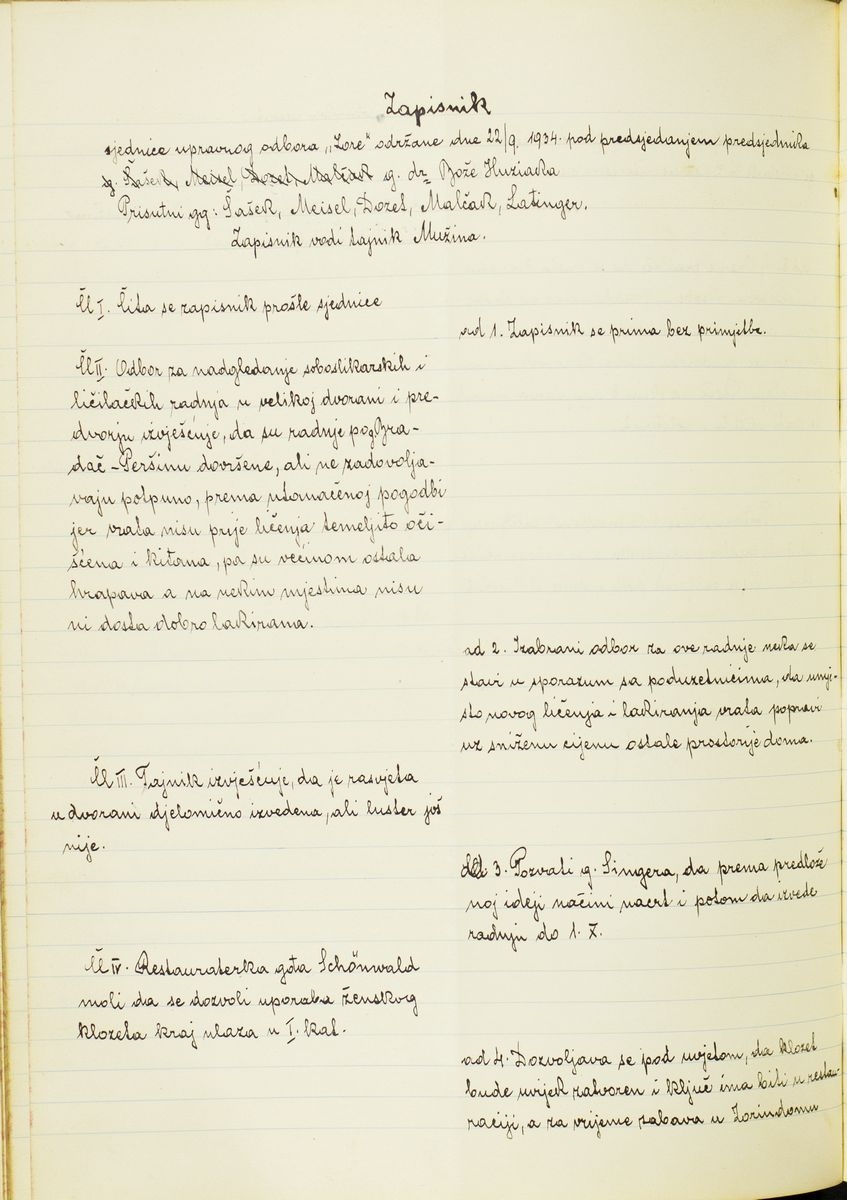 Zapisnik
sjednice upravnog odbora „Zore“ održane dne 22/9. 1934. pod predsjedanjem predsjednika
g. Šašek, Meisel, Dozet, Malčak g. dr. Bože Huziaka
Prisutni gg: Šašek, Meisel, Dozet, Malčak, Latinger.
Zapisnik vodi tajnik Mužina.
Čl I. Čita se zapisnik prošle sjednice
ad 1. Zapisnik se prima bez primjetbe.
Čl II. Odbor za nadgledanje soboslikarskih i
ličilačkih radnja u velikoj dvorani i pre-
dvorju izvješćuje, da su radnje po g Bra-
dač - Peršinu dovršene, ali ne zadovolja-
vaju potpuno, prema utanačenoj pogodbi
jer vrata nisu prije ličenja temeljito oči-
šćena i kitana, pa su većinom ostala
hrapava a na nekim mjestima nisu
ni dosta dobro lakirana.
ad 2. Izabrani odbor za ove radnje neka se
stavi u sporazum sa poduzetnicima, da umje-
sto novog ličenja i lakiranja vrata popravi
uz sniženu cijenu ostale prostorije doma.
Čl III. Tajnik izvješćuje, da je rasvjeta
u dvorani djelomično izvedena, ali luster još
nije.
ad 3. Pozvati g. Singera, da prema predlože
noj ideji načini nacrt i potom da izvede
radnju do 1. X.
Čl IV. Restauraterka gđa Schönwald
moli da se dozvoli uporaba ženskog
klozeta kraj ulaza u I. kat.
ad 4. Dozvoljava se pod uvjetom, da klozet
bude uvijek zatvoren i ključ ima biti u restau-
raciji, a za vrijeme zabava u Zorindomu